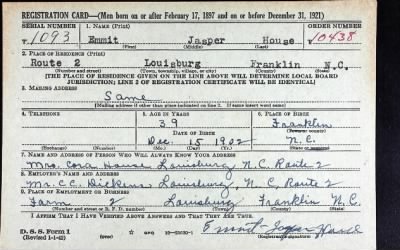 REGISTRATION CARD—(Men born on or after February 17, 1897 and on or before December 31, 1921)
SERIAL NUMBER 1. NAME (Print) ORDER NUMBER
T 1093 Emmit Jasper House 10438
(First) (Middle) (Last)
2. PLACE OF RESIDENCE (Print)
Route 2 Louisburg Franklin N.C.
(Number and street) (Town, township, village, or city) (County) (State)
[THE PLACE OF RESIDENCE GIVEN ON THE LINE ABOVE WILL DETERMINE LOCAL BOARD
JURISDICTION; LINE 2 OF REGISTRATION CERTIFICATE WILL BE IDENTICAL]
3. MAILING ADDRESS
Same
[Mailing address if other than place indicated on line 2. If same insert word same]
4. TELEPHONE 5. AGE IN YEARS 6. PLACE OF BIRTH
39 Franklin
DATE OF BIRTH (Town or county)
Dec. 15 1902 N.C.
(Exchange) (Number) (Mo.) (Day) (Yr.) (State or country)
7. NAME AND ADDRESS OF PERSON WHO WILL ALWAYS KNOW YOUR ADDRESS
Mrs. Cora House Louisburg, N.C. Route 2
8. EMPLOYER'S NAME AND ADDRESS
Mr. C.C. Dickens Louisburg, N.C. Route 2
9. PLACE OF EMPLOYMENT OR BUSINESS
Farm 2 Louisburg Franklin N.C.
(Number and street or R. F. D. number) (Town) (County) (State)
I AFFIRM THAT I HAVE VERIFIED ABOVE ANSWERS AND THAT THEY ARE TRUE.
D. S. S. Form 1
(Revised 1-1-42) (over) Emmit Jasper House
(Registrant's signature)